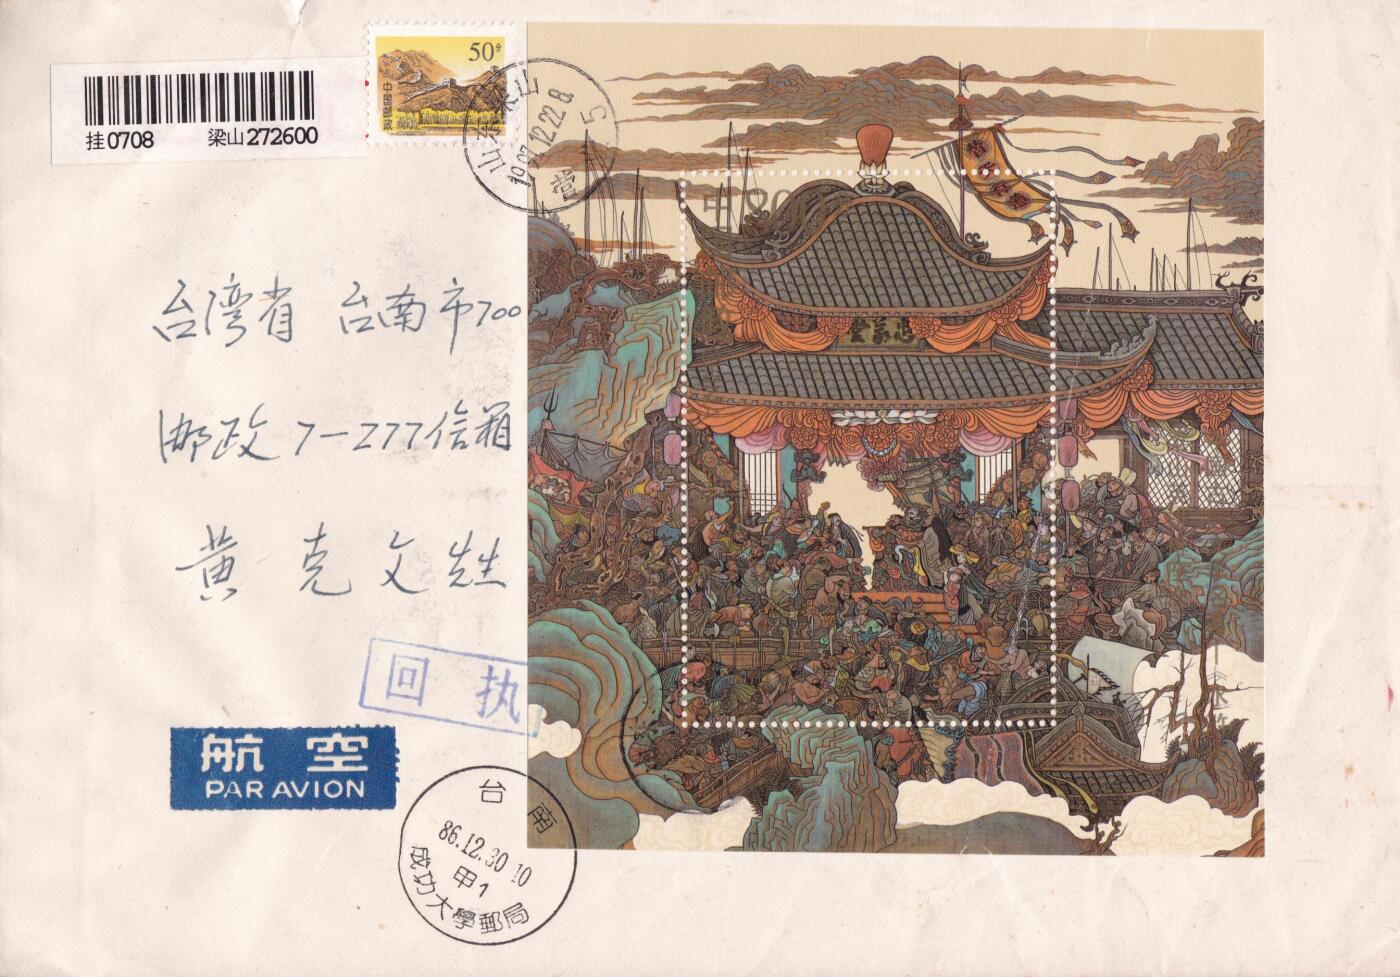 挂0708 梁山272600
50分
中国邮政
山东梁山
1997.12.22.8
营 5
中 800
替天行道
忠義堂
台湾省 台南市700
邮政 7-277信箱
黄克文先生
回执
航空
PAR AVION
台南
86.12.30 10
甲1
成功大學郵局